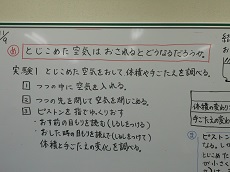 1/9
め とじこめた空気はおされるとどうなるだろうか。
実験1 とじこめた空気をおして体積や手ごたえを調べる。
1 つつの中に空気を入れる。
2 つつの先を閉じて空気を閉じこめる。
3 ピストンを指でゆっくりおす
・おす前の目もりを読む(しるしをつける)
・おした時の目もりを読んで(しるしをつけて)
体積と手ごたえの変化を調べる。
結
体積の変わり
手ごたえの変
ピスト